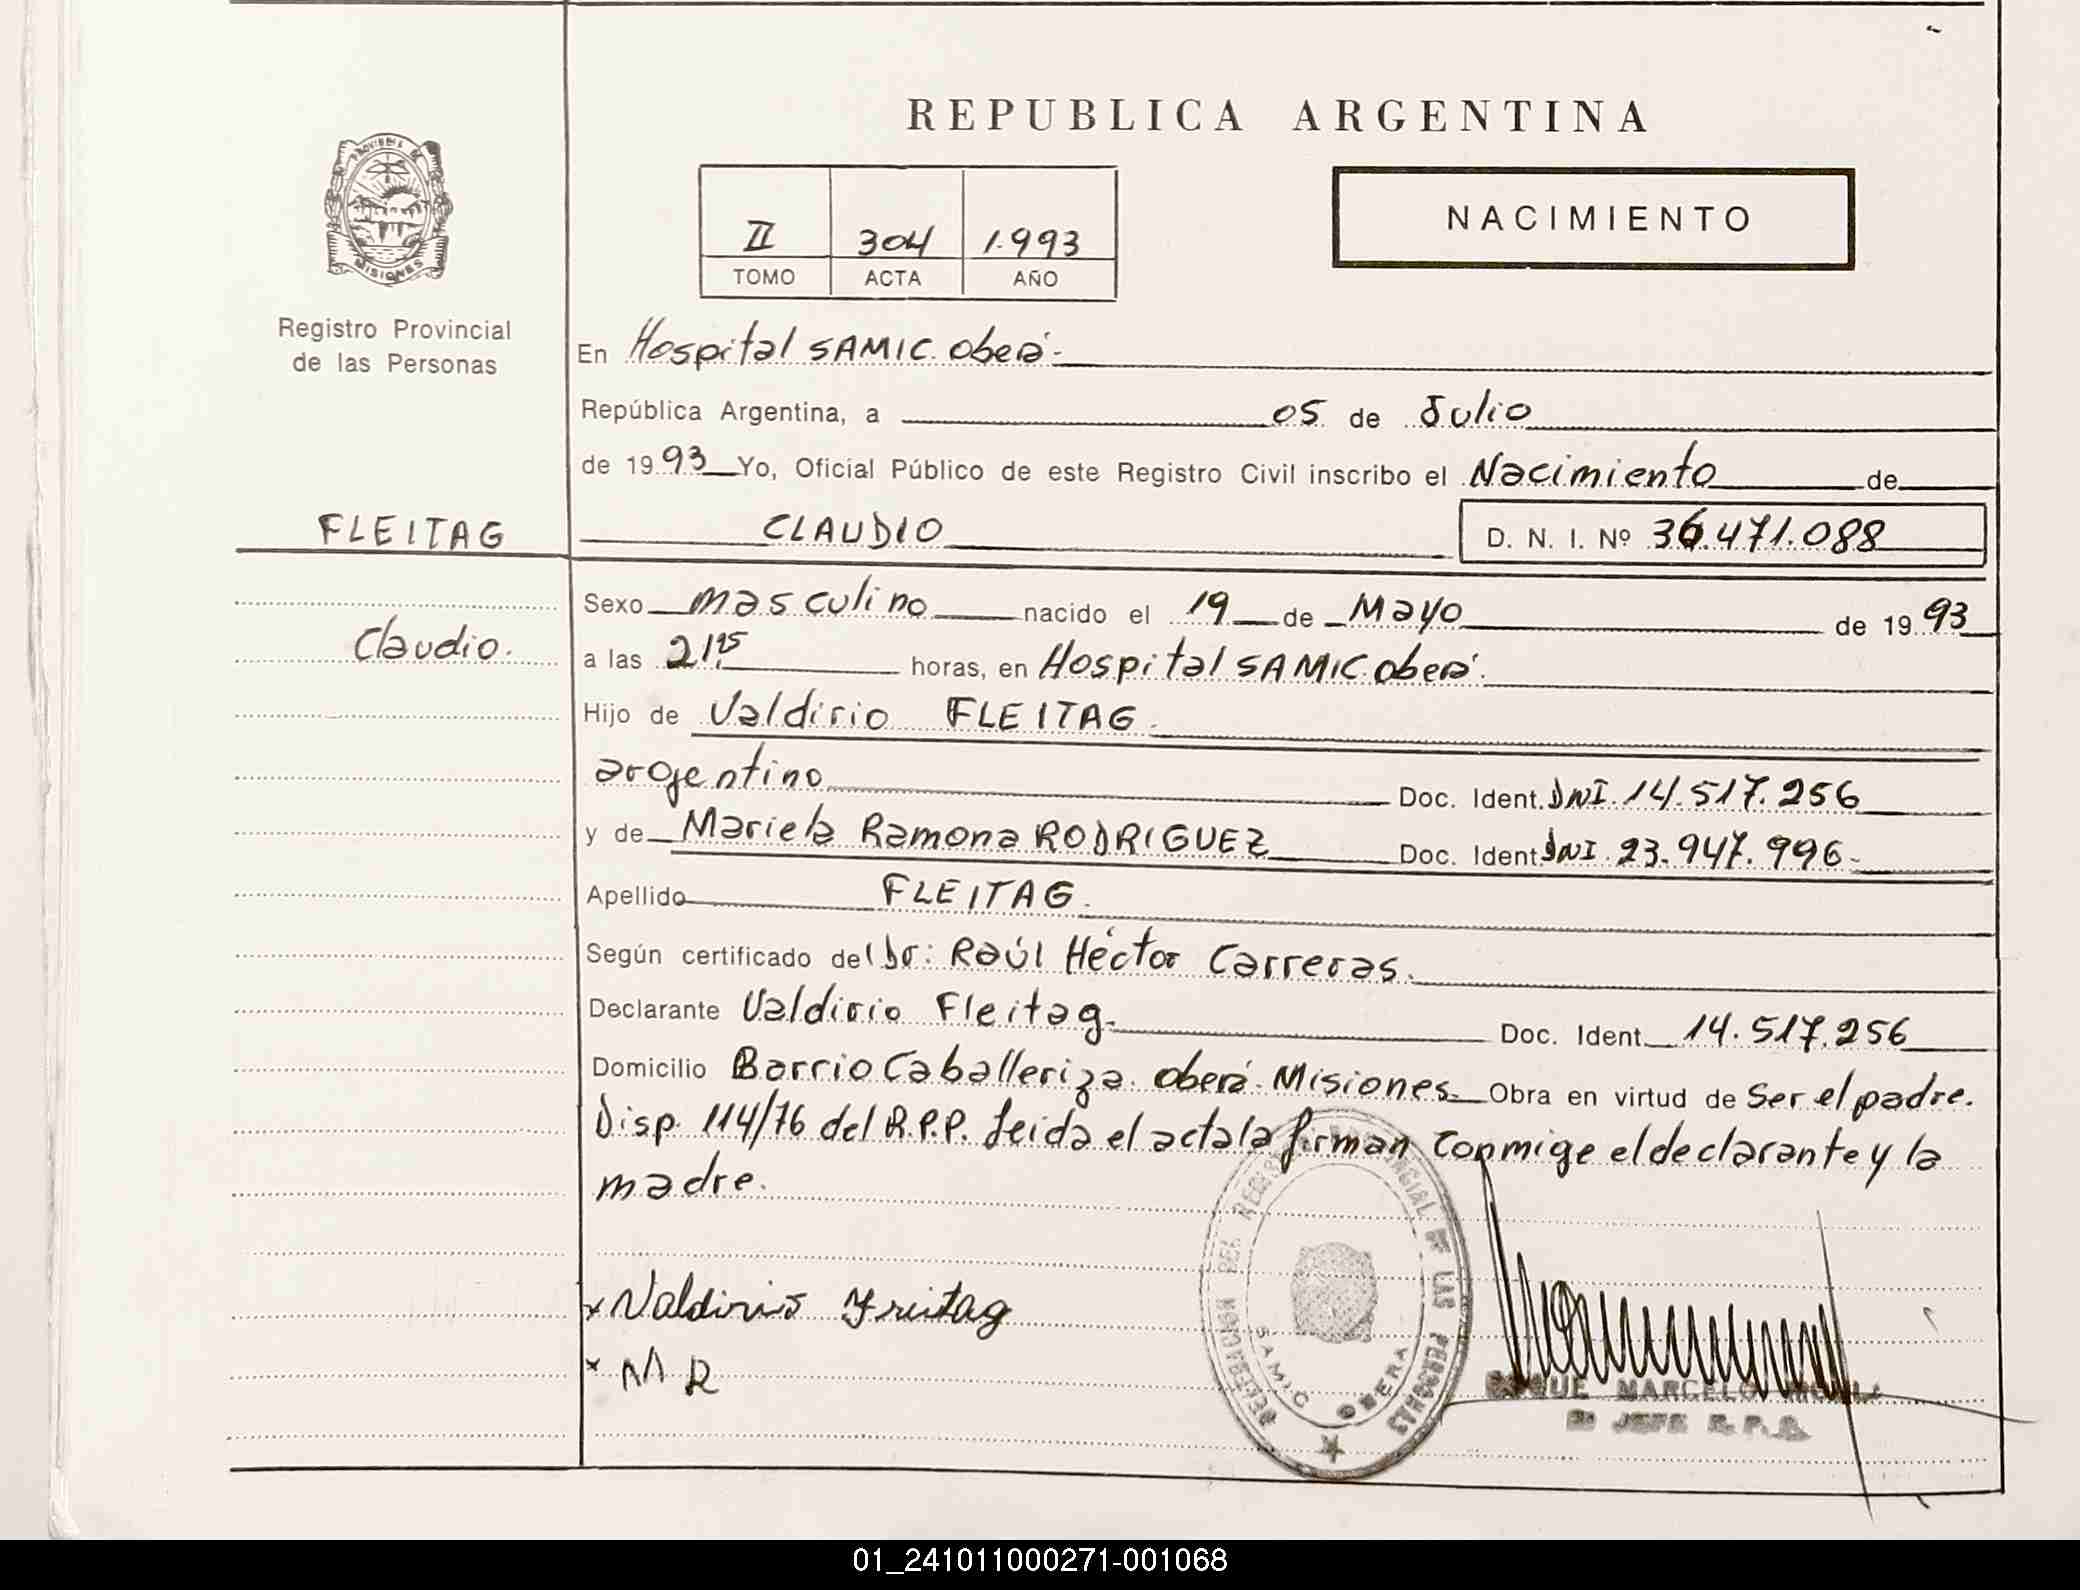 REPUBLICA ARGENTINA
PROVINCIA DE
MISIONES
Registro Provincial
de las Personas
II 304 1.993
TOMO ACTA AÑO
NACIMIENTO
En Hospital SAMIC. Oberá.
República Argentina, a 05 de Julio
de 1993 Yo, Oficial Público de este Registro Civil inscribo el Nacimiento de
FLEITAG CLAUDIO D. N. I. Nº 36.471.088
Sexo masculino nacido el 19 de Mayo de 1993
Claudio.
a las 21,15 horas, en Hospital SAMIC. Oberá.
Hijo de Valdirio FLEITAG.
argentino Doc. Ident. DNI. 14.517.256
y de Mariela Ramona RODRIGUEZ Doc. Ident. DNI. 23.947.996.
Apellido FLEITAG.
Según certificado del Dr: Raúl Héctor Carreras.
Declarante Valdirio Fleitag. Doc. Ident. 14.517.256
Domicilio Barrio Caballeriza. Oberá. Misiones. Obra en virtud de Ser el padre.
Disp. 114/76 del R.P.P. Leida el acta la firman conmigo el declarante y la
madre.
x Valdirio Freitag
x M R
DEL REGISTRO PROVINCIAL DE LAS PERSONAS
SAMIC OBERA
ROQUE MARCELO
JEFE R. P. P.
01_241011000271-001068